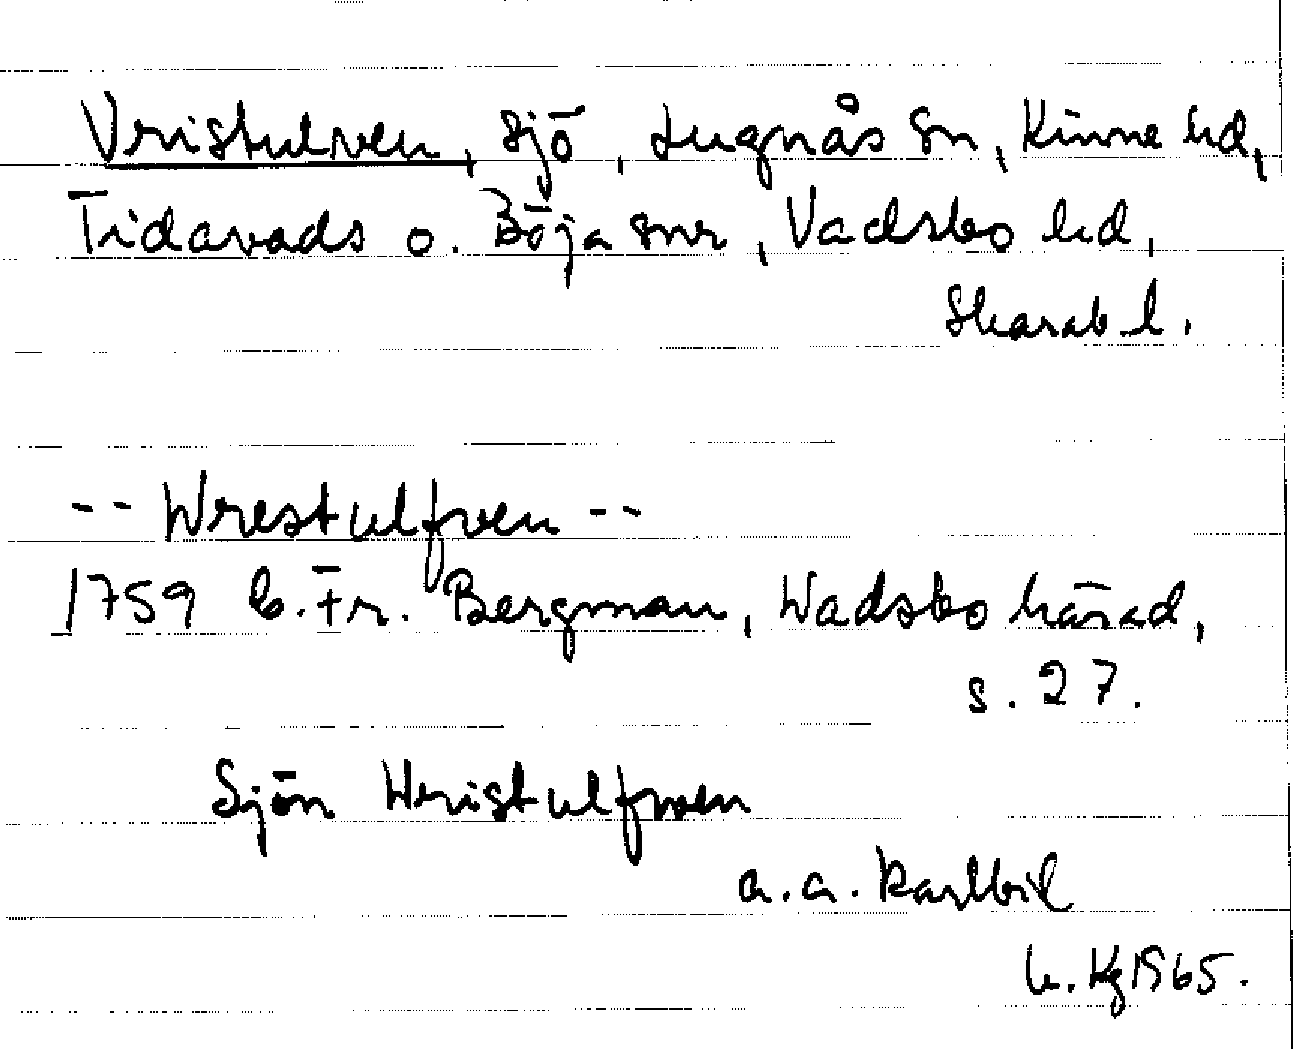 Vristulven, sjö, Lugnås sn, Kinne hd,
Tidavads o. Böja snr, Vadsbo hd,
Skarab. l.
-- Wrestulfven --
1759 C. Fr. Bergman, Wadsbo härad,
s. 27.
Sjön Wristulfwen
a. a. kartbil
1965.